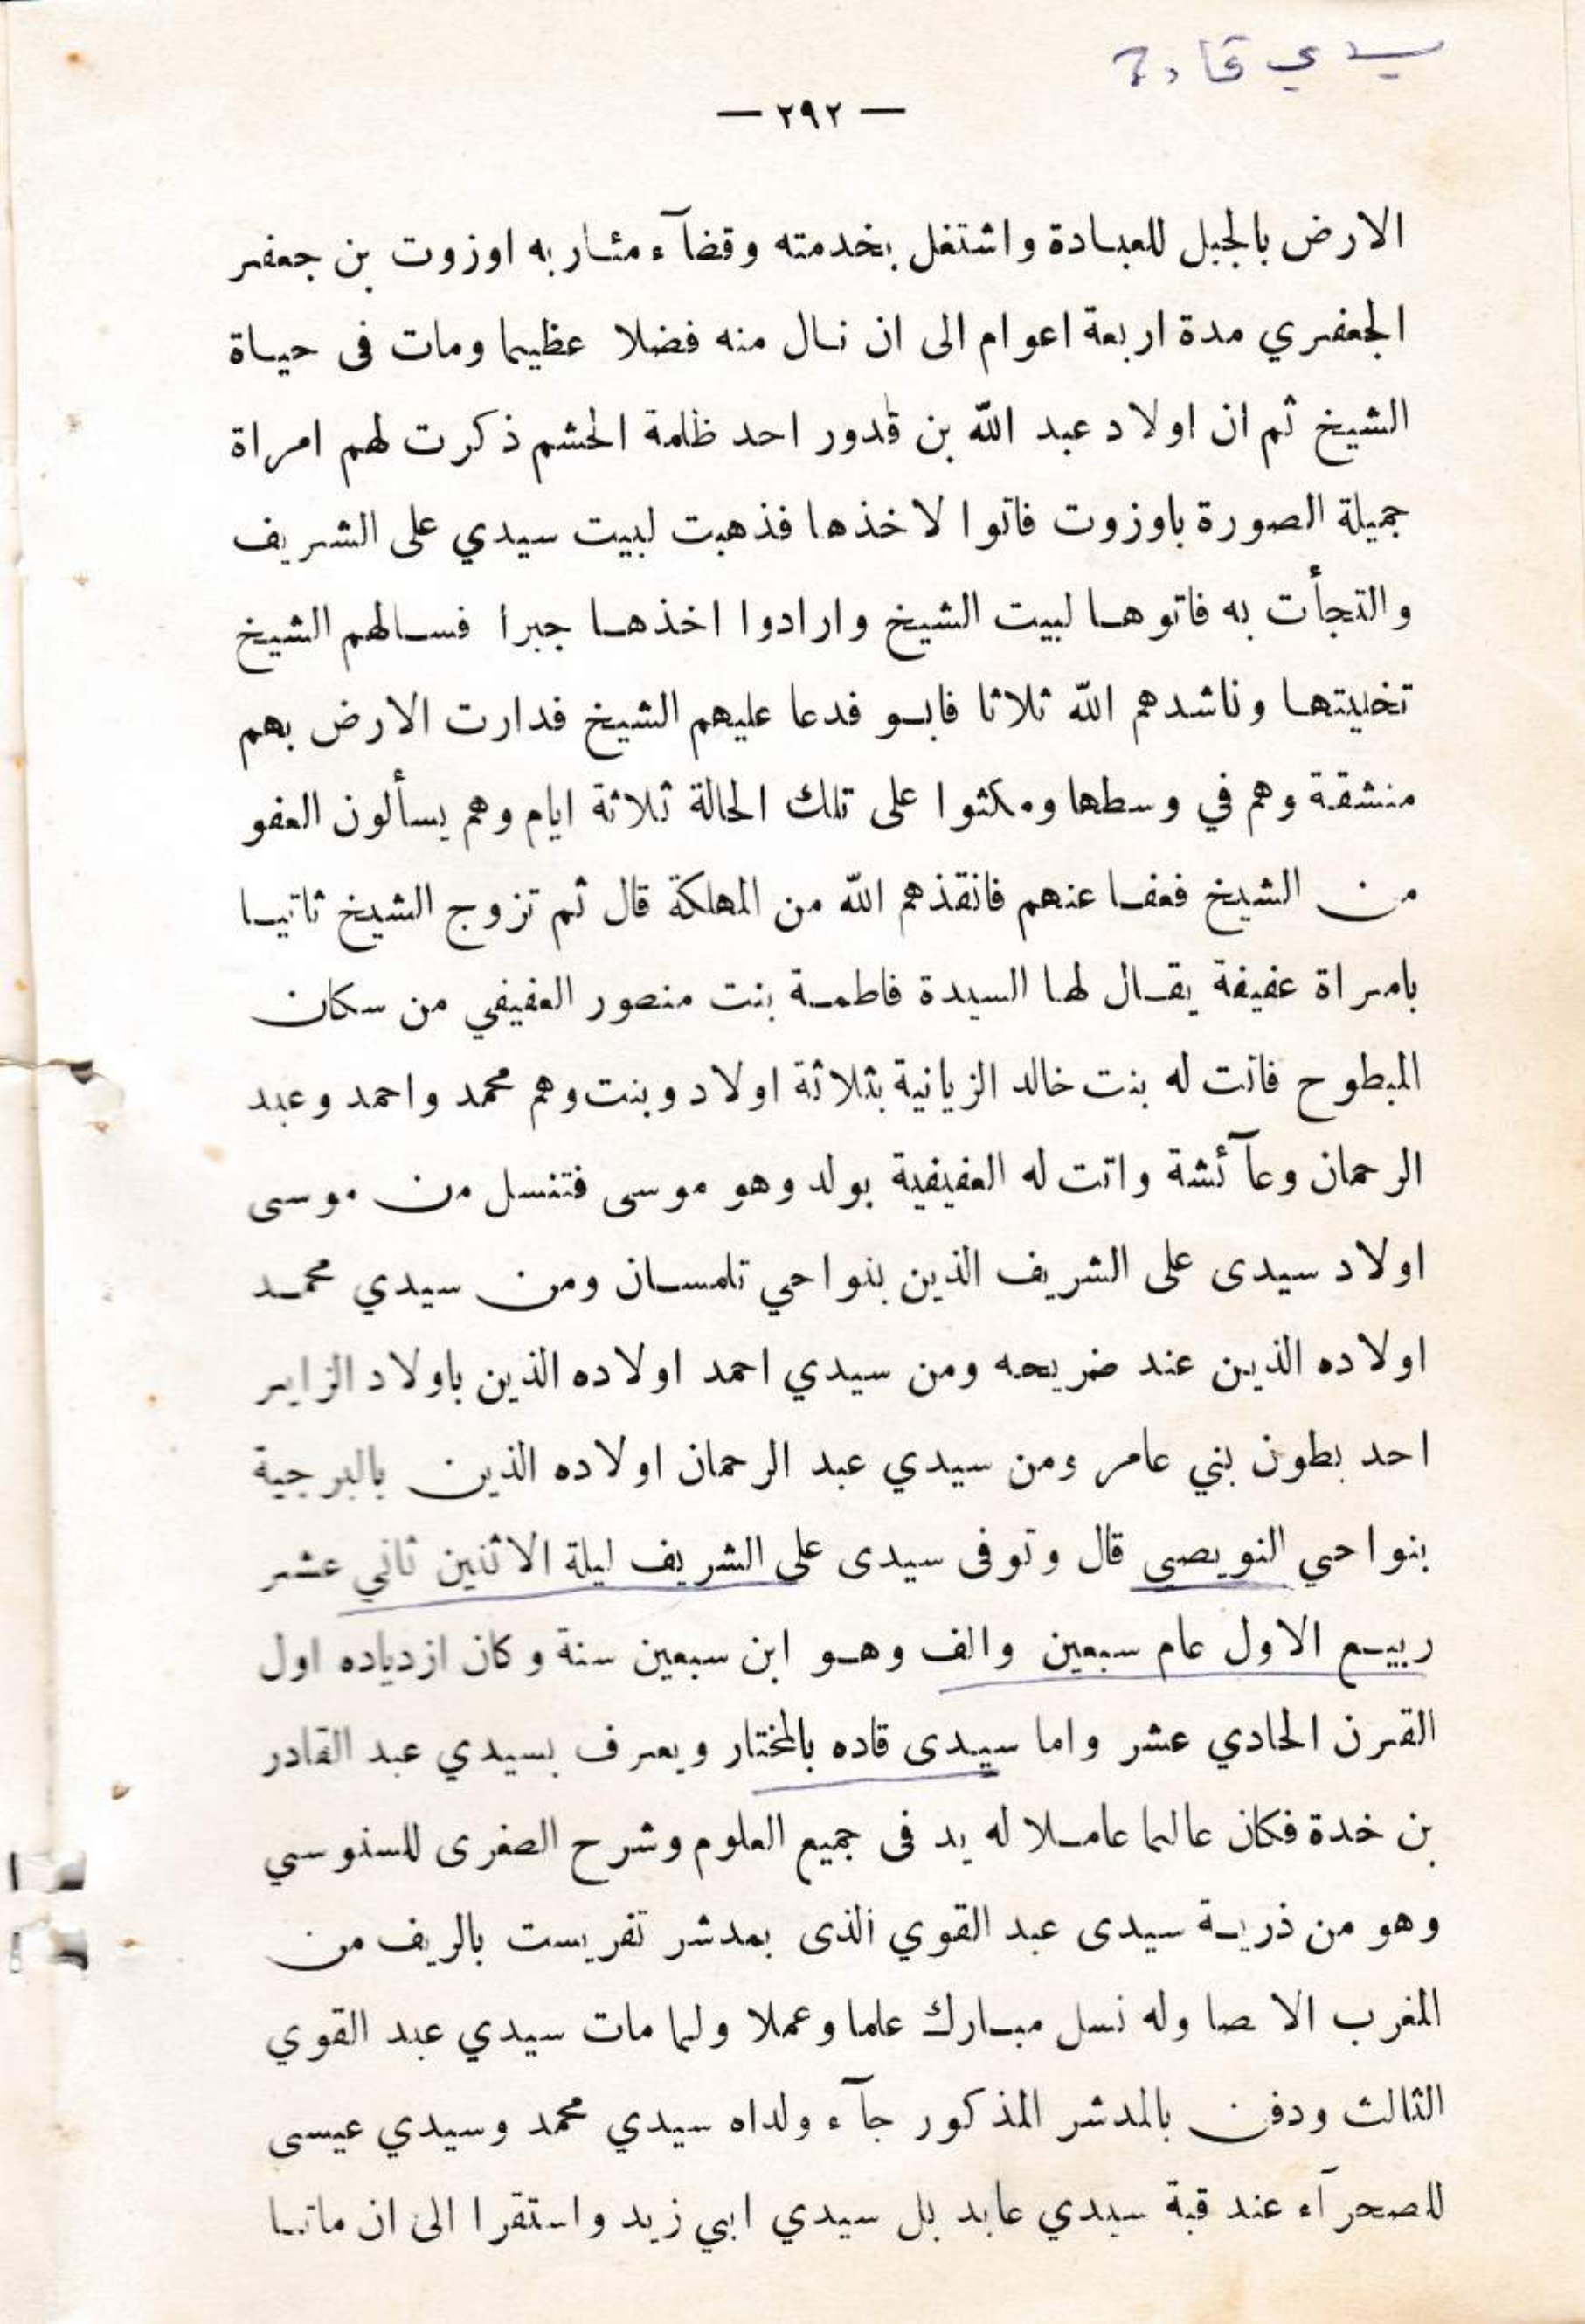 سيدي قادة
— ٢٩٢ —
الارض بالجبل للعبادة واشتغل بخدمته وقضآء مئاربه اوزوت بن جعفر
الجعفري مدة اربعة اعوام الى ان نال منه فضلا عظيما ومات فى حياة
الشيخ ثم ان اولاد عبد الله بن قدور احد ظلمة الحشم ذكرت لهم امراة
جميلة الصورة باوزوت فاتوا لاخذها فذهبت لبيت سيدي على الشريف
والتجأت به فاتوها لبيت الشيخ وارادوا اخذها جبرا فسالهم الشيخ
تخليتها وناشدهم الله ثلاثا فابو فدعا عليهم الشيخ فدارت الارض بهم
منشقة وهم في وسطها ومكثوا على تلك الحالة ثلاثة ايام وهم يسألون العفو
من الشيخ فعفا عنهم فانقذهم الله من المهلكة قال ثم تزوج الشيخ ثانيا
بامراة عفيفة يقال لها السيدة فاطمة بنت منصور العفيفي من سكان
المبطوح فاتت له بنت خالد الزيانية بثلاثة اولاد وبنت وهم محمد واحمد وعبد
الرحمان وعآئشة واتت له العفيفية بولد وهو موسى فتنسل من موسى
اولاد سيدى على الشريف الذين بنواحي تلمسان ومن سيدي محمد
اولاده الذين عند ضريحه ومن سيدي احمد اولاده الذين باولاد الزاير
احد بطون بني عامر ومن سيدي عبد الرحمان اولاده الذين بالبرجية
بنواحي النويصي قال وتوفى سيدى على الشريف ليلة الاثنين ثاني عشر
ربيع الاول عام سبعين والف وهو ابن سبعين سنة وكان ازدياده اول
القرن الحادي عشر واما سيدى قاده بالمختار ويعرف بسيدي عبد القادر
بن خدة فكان عالما عاملا له يد فى جميع العلوم وشرح الصغرى للسنوسي
وهو من ذرية سيدى عبد القوي الذى بمدشر تفريست بالريف من
المغرب الاصا وله نسل مبارك علما وعملا ولما مات سيدي عبد القوي
الثالث ودفن بالمدشر المذكور جآء ولداه سيدي محمد وسيدي عيسى
للصحرآء عند قبة سيدي عابد بل سيدي ابي زيد واستقرا الى ان ماتا